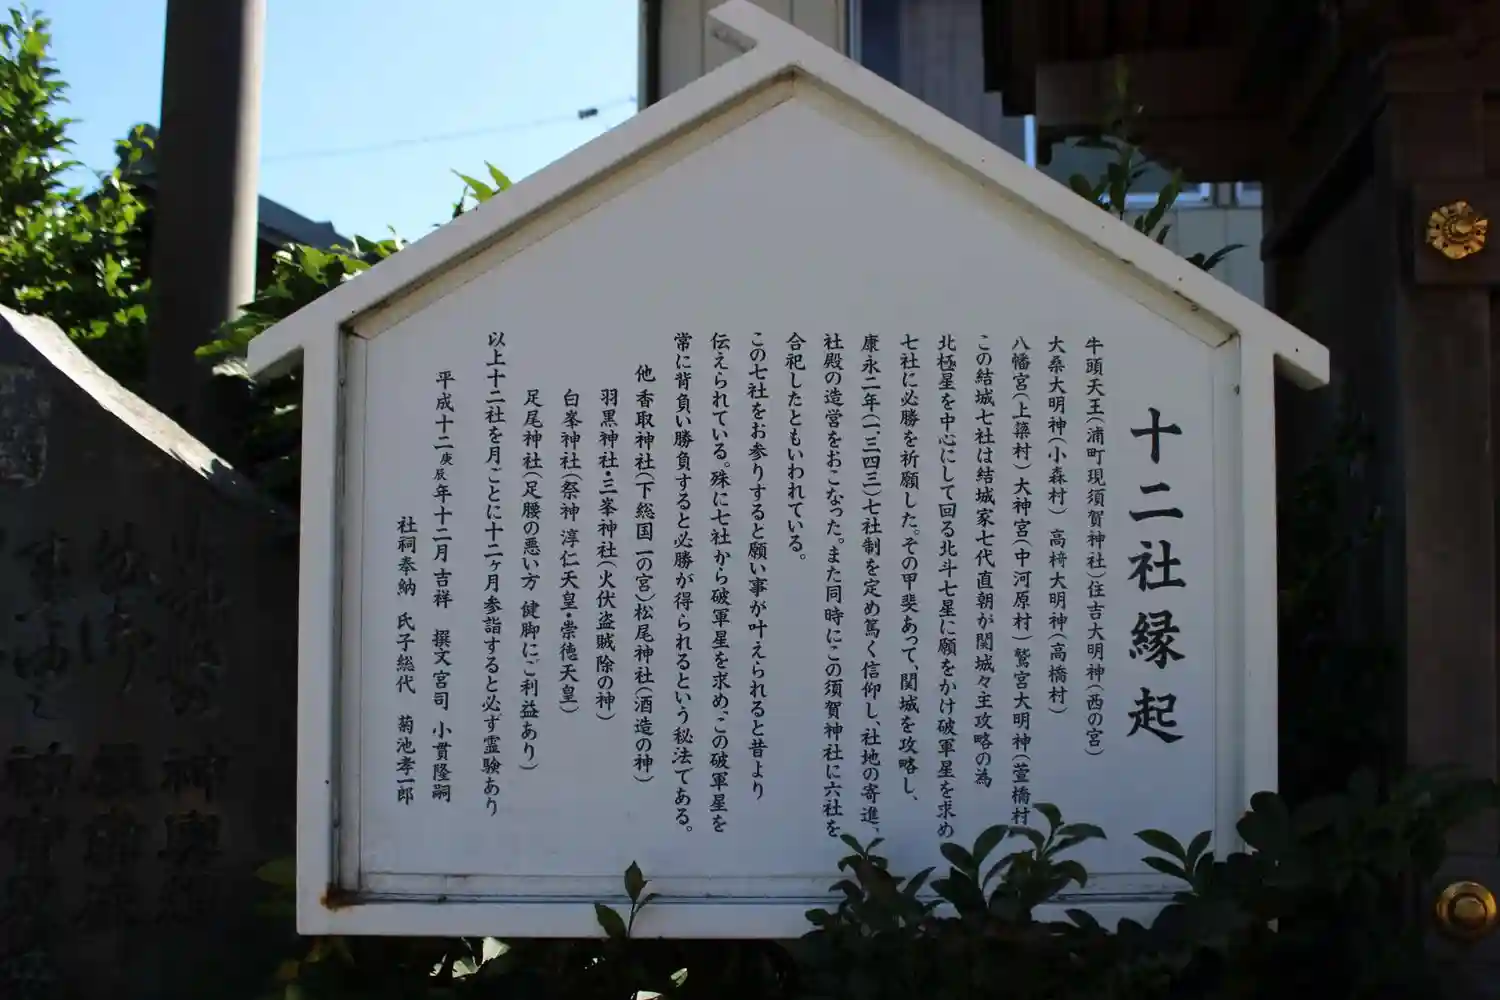 十二社縁起
牛頭天王(浦町現須賀神社)住吉大明神(西の宮)
大桑大明神(小森村) 高椅大明神(高橋村)
八幡宮(上簗村)大神宮(中河原村)鷲宮大明神(萱橋村
この結城七社は結城家七代直朝が関城々主攻略の為
北極星を中心にして回る北斗七星に願をかけ破軍星を求め
七社に必勝を祈願した。その甲斐あって、関城を攻略し、
康永二年(一三四三)七社制を定め篤く信仰し、社地の寄進、
社殿の造営をおこなった。また同時にこの須賀神社に六社を
合祀したともいわれている。
この七社をお参りすると願い事が叶えられると昔より
伝えられている。殊に七社から破軍星を求め、この破軍星を
常に背負い勝負すると必勝が得られるという秘法である。
他 香取神社(下総国一の宮)松尾神社(酒造の神)
羽黒神社・三峯神社(火伏盗賊除の神)
白峯神社(祭神 淳仁天皇・崇徳天皇)
足尾神社(足腰の悪い方 健脚にご利益あり)
以上十二社を月ごとに十二ヶ月参詣すると必ず霊験あり
平成十二庚辰年十二月吉祥 撰文宮司 小貫隆嗣
社祠奉納 氏子総代 菊池孝一郎